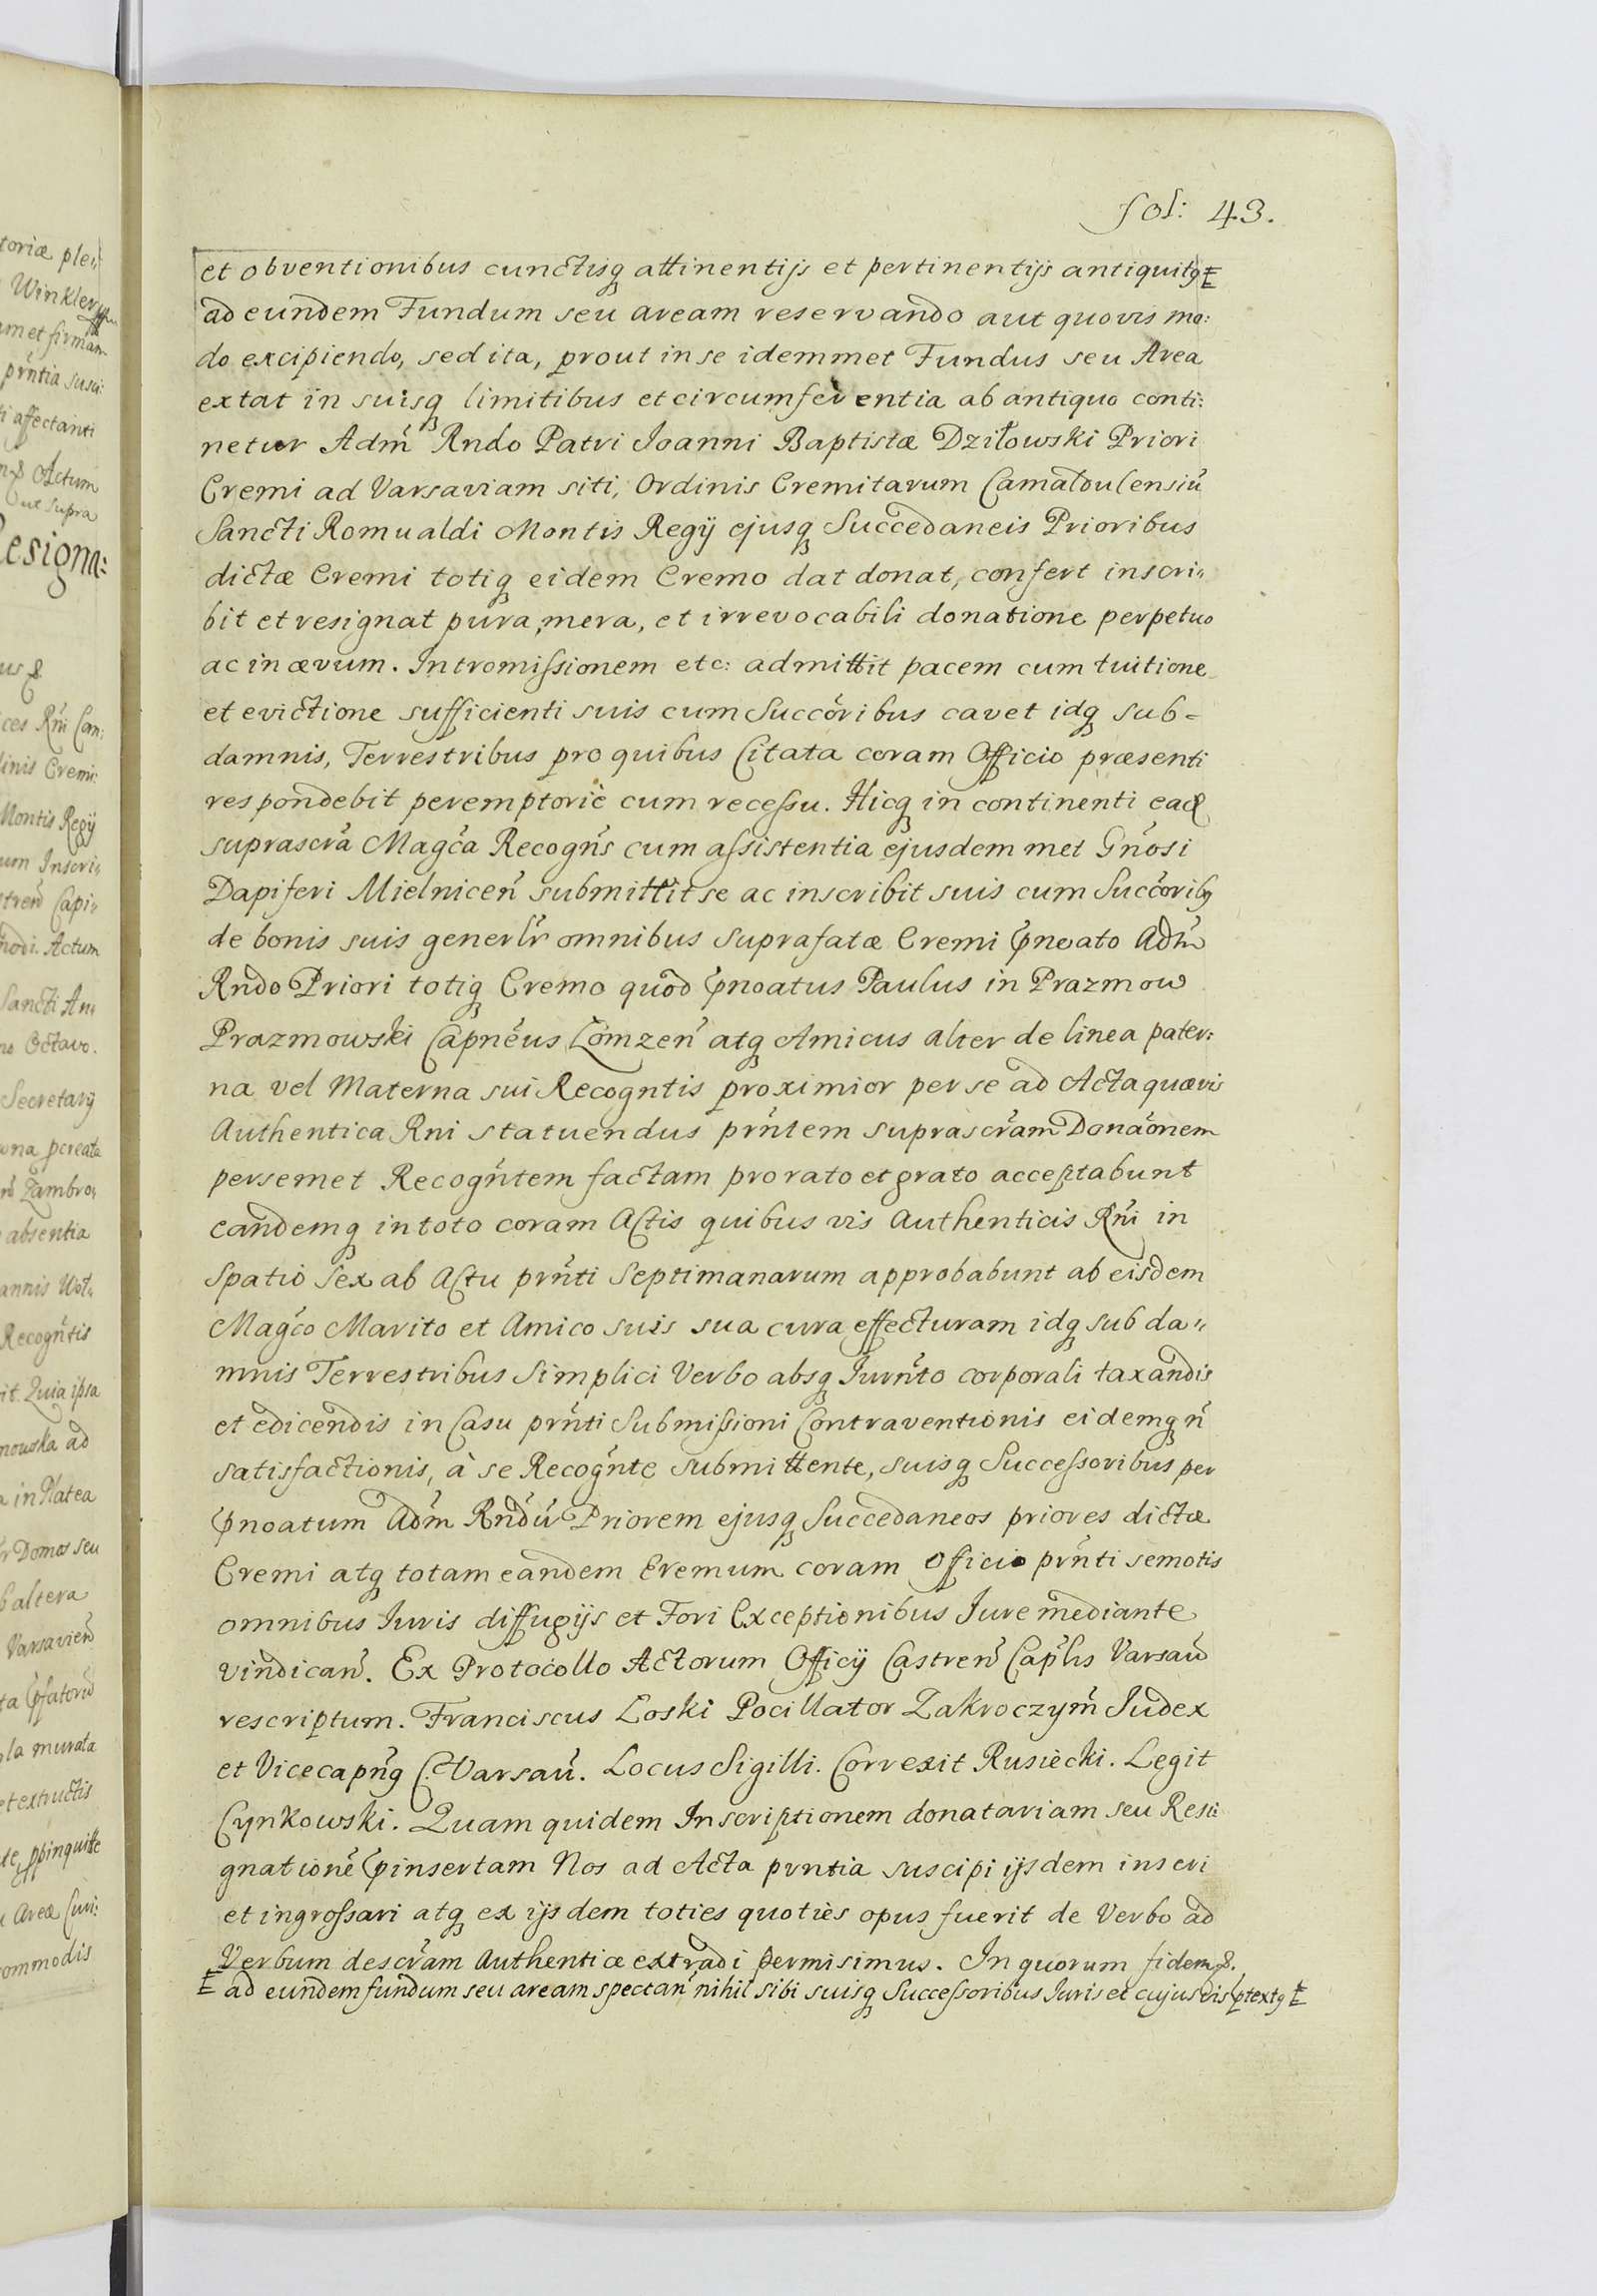 fol: 43.
et obventionibus cunctisq attinentijs et pertinentijs antiquitq
ad eundem Fundum seu aream reservando aut quovis mo:
do excipiendo, sed ita, prout in se idemmet Fundus seu Area
extat in suisq limitibus et circumferentia ab antiquo conti:
netur Adm̃ Rndo Patri Joanni Baptistæ Dziłowski Priori
Eremi ad Varsaviam siti, Ordinis Eremitarum Camaldulensiũ
Sancti Romualdi Montis Regij ejusq Succedaneis Prioribus
dictæ Eremi totiq eidem Eremo dat donat, confert inscri„
bit et resignat pura, mera, et irrevocabili donatione perpetuo
ac in ævum. Intromissionem etc: admittit pacem cum tuitione
et evictione sufficienti suis cum Succõribus cavet idq sub-
damnis, Terrestribus pro quibus Citata coram Officio præsenti
respondebit peremptoriè cum recessu. Hicq in continenti ead
suprascra Magca Recogns cum assistentia ejusdem met Gnosi
Dapiferi Mielnicen submittit se ac inscribit suis cum Succoribq
de bonis suis generlr omnibus suprafatæ Eremi pnoato Adm
Rndo Priori totiq Eremo quod pnoatus Paulus in Prazmow
Prazmowski Capneus Łomzen atq Amicus alter de linea pater:
na vel Materna sui Recogntis proximior per se ad Acta quævis
Authentica Rni statuendus prntem suprascram Donaonem
persemet Recogntem factam pro rato et grato acceptabunt
eandemq in toto coram Actis quibus vis Authenticis Rni in
Spatio Sex ab Actu prnti Septimanarum approbabunt ab eisdem
Magco Marito et Amico suis sua cura effecturam idq sub da„
mnis Terrestribus Simplici Verbo absq Jurnto corporali taxandis
et edicendis in Casu prnti Submissioni Contraventionis eidemq n
satisfactionis, à se Recognte submittente, suisq Successoribus per
pnoatum Adm Rndũ Priorem ejusq Succedaneos priores dictæ
Eremi atq totam eandem Eremum coram Officio prnti semotis
omnibus Juris diffugijs et Fori Exceptionibus Jure mediante
vindican. Ex Protocollo Actorum Officij Castren Caplis Varsav
rescriptum. Franciscus Łoski Pocillator Zakroczym Judex
et Vicecapnq C. Varsav. Locus Sigilli. Correxit Rusiecki. Legit
Cynkowski. Quam quidem Inscriptionem donatariam seu Resi
gnationẽ pinsertam Nos ad Acta prntia suscipi ijsdem inseri
et ingrossari atq ex ijsdem toties quoties opus fuerit de Verbo ad
Verbum descram Authenticæ extradi permisimus. In quorum fidem
ad eundem fundum seu aream spectan nihil sibi suisq Successoribus Juris et cujusvis ptextq